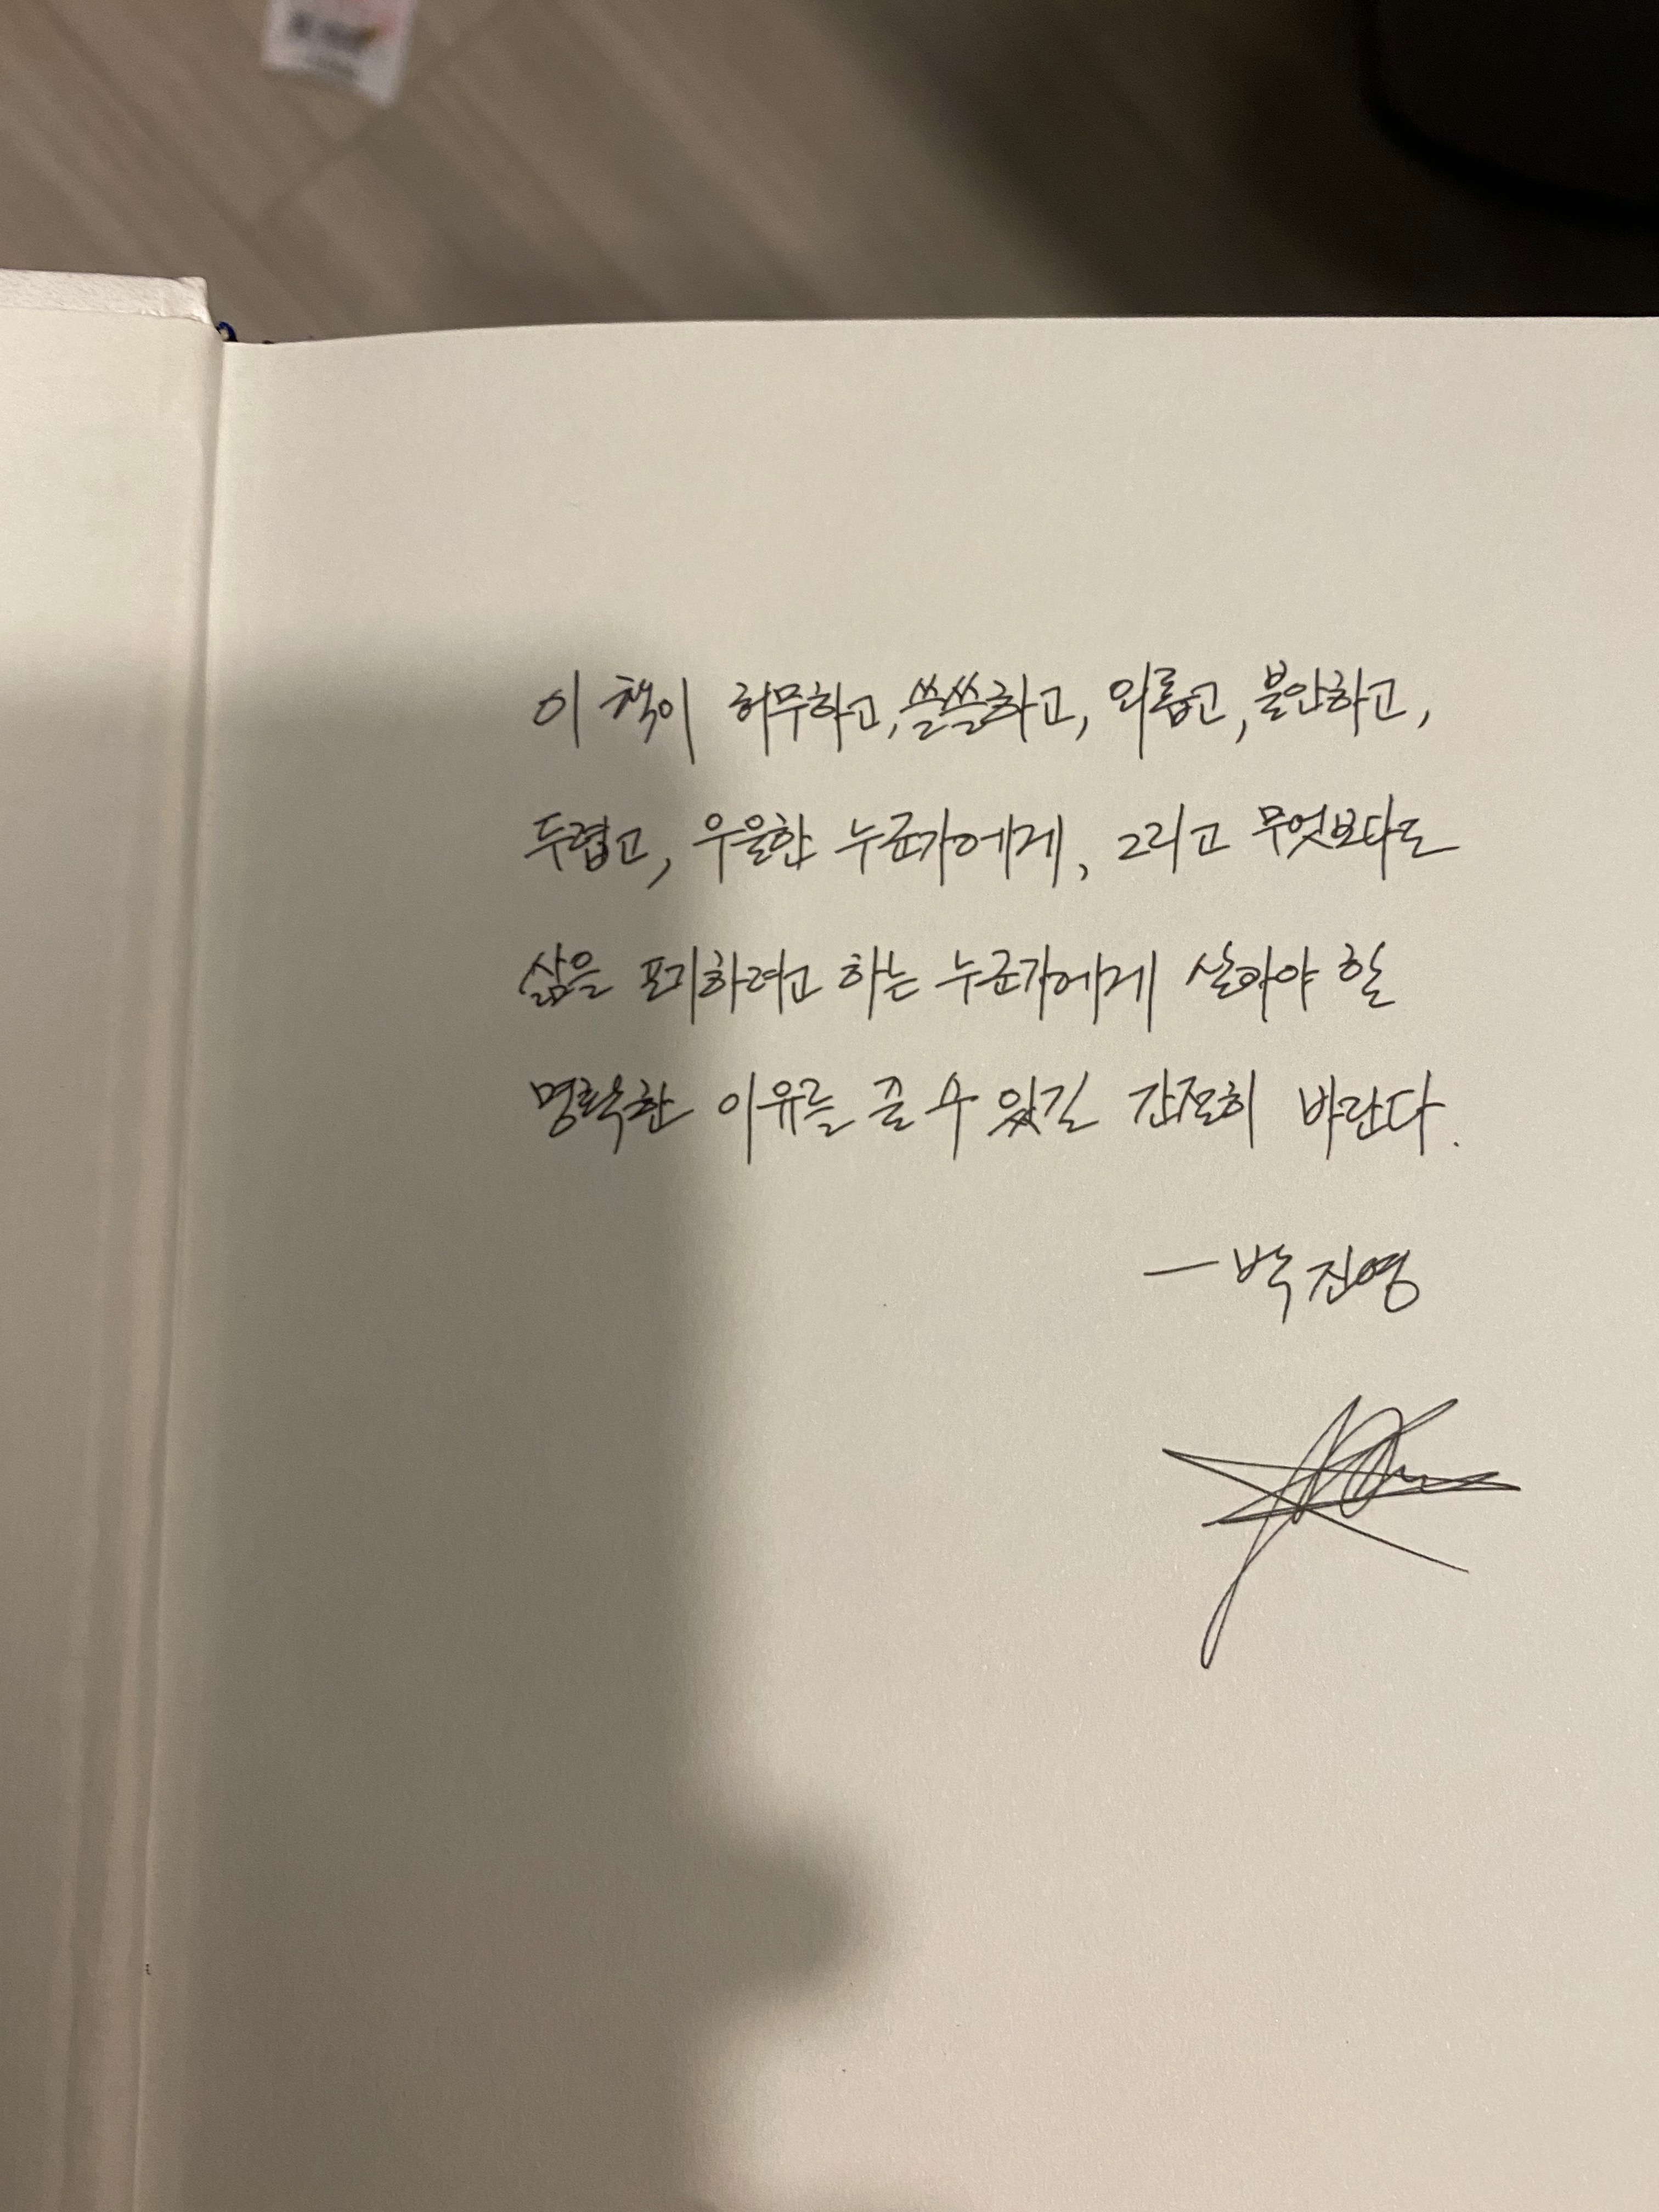 이 책이 허무하고, 쓸쓸하고, 외롭고, 불안하고,
두렵고, 우울한 누군가에게, 그리고 무엇보다도
삶을 포기하려고 하는 누군가에게 살아야 할
명확한 이유를 줄 수 있길 간절히 바란다.
— 박진영